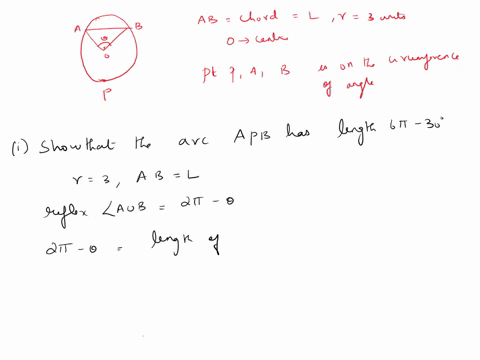 A B
θ
r
O
P
AB = Chord = L , r = 3 units
O → centre
Pt P, A, B is on the circumference
of angle
(i) Show that the arc APB has length 6π - 3θ
r = 3, AB = L
reflex ∠AOB = 2π - θ
2π - θ = length of